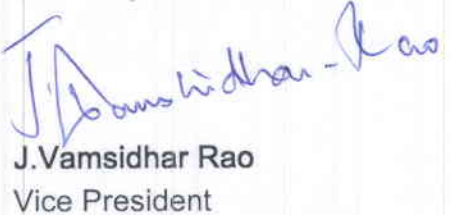 J.Vamshidhar-Rao
J.Vamsidhar Rao
Vice President